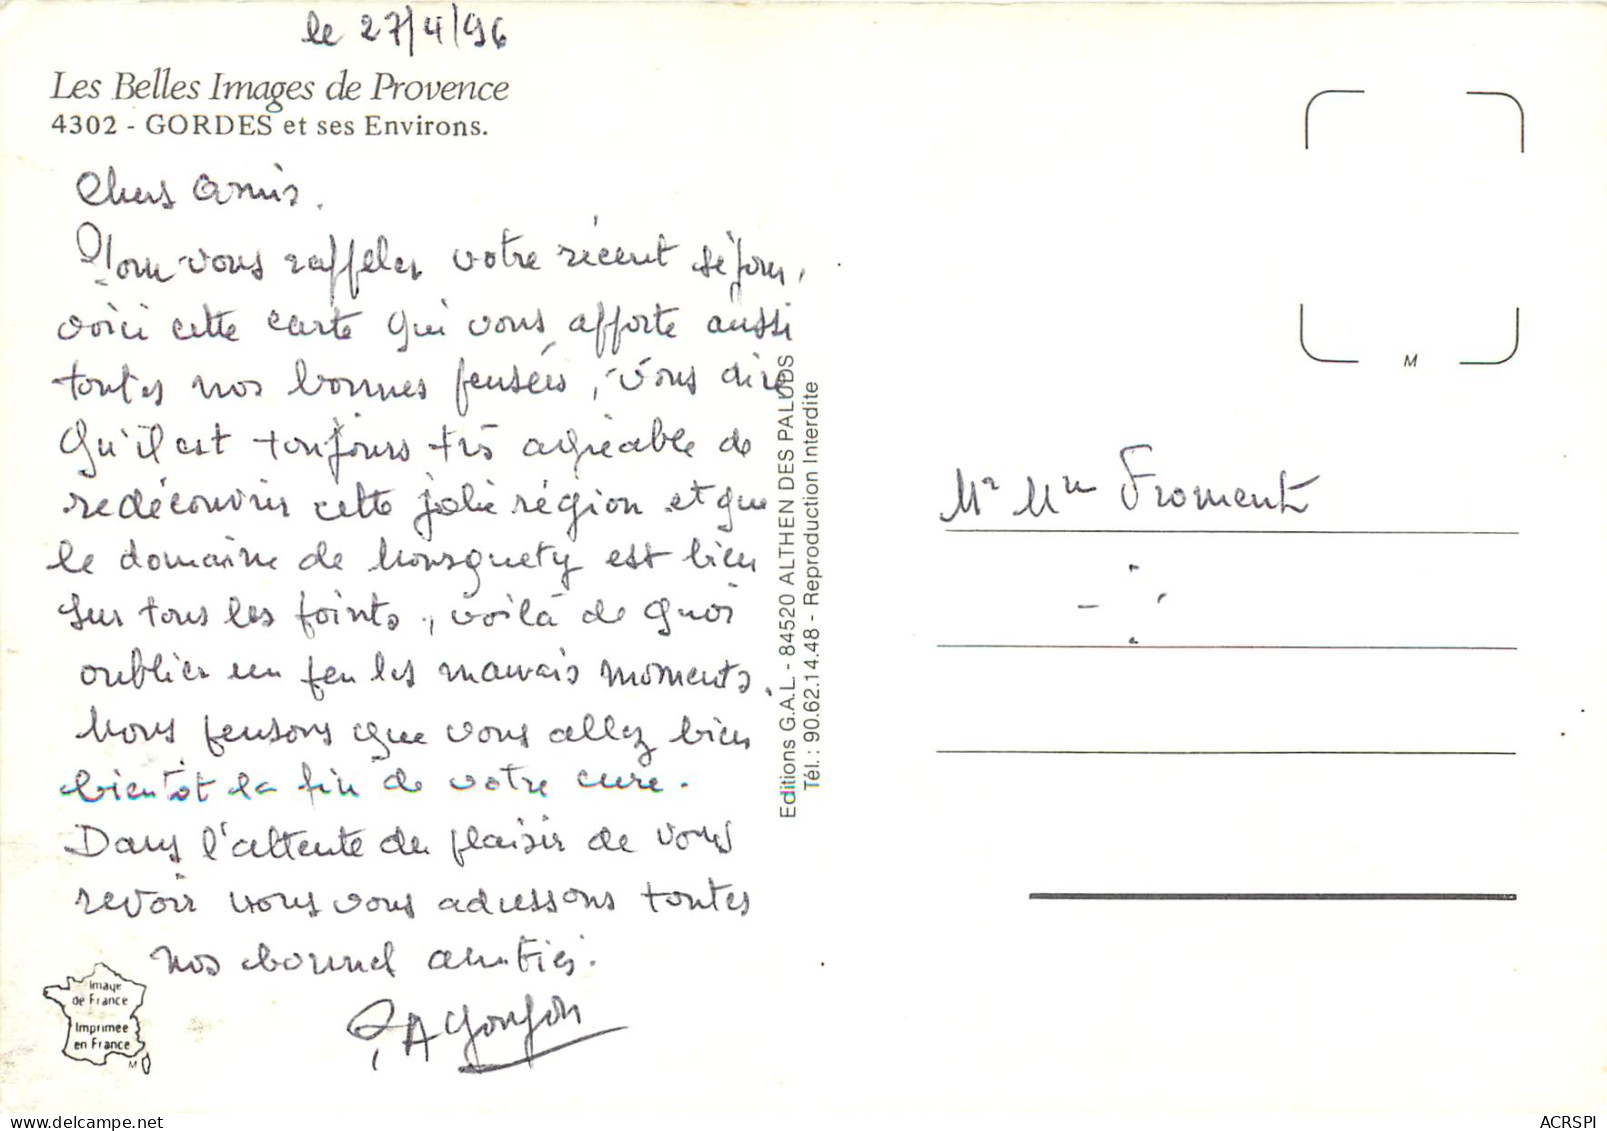 le 27/4/96
Les Belles Images de Provence
4302 - GORDES et ses Environs.
Chers Amis.
Pour vous rappeler votre récent séjour,
voici cette carte qui vous apporte aussi
toutes nos bonnes pensées, vous dire
qu'il est toujours très agréable de
redécouvrir cette jolie région et que
le domaine de Mousquety est bien
sur tous les points, voilà de quoi
oublier un peu les mauvais moments.
Nous pensons que vous allez bien
bientôt la fin de votre cure.
Dans l'attente du plaisir de vous
revoir nous vous adressons toutes
nos bonnes amitiés.
Editions G.A.L. - 84520 ALTHEN DES PALUDS
Tél. : 90.62.14.48 - Reproduction Interdite
M
Mr Mme Froment
Image
de France
Imprimée
en France
M
ACRSPI